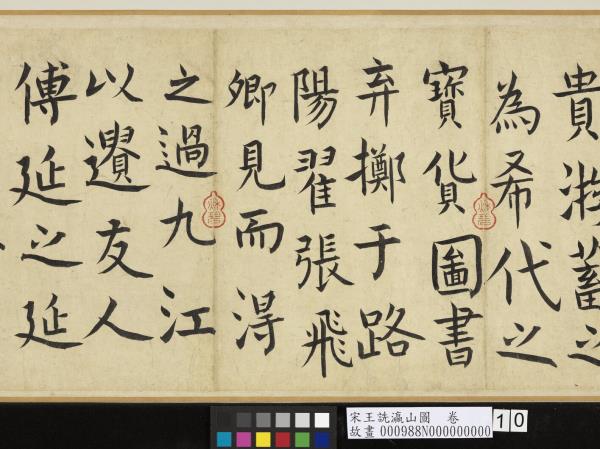 貴游蓄之
為希代之
寶貨圖書
弃擲于路
陽翟張飛
卿見而淂
之過九江
以遺友人
傅延之延
宋王詵瀛山圖 卷
故畫 000988N000000000
10